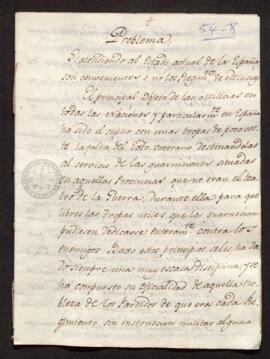 54-8
Problema.
Si atendiendo al Estado actual de la España
son convenientes o no los Regim.tos de Milicias
El principal Objeto de las Milicias en
todas las naciones y particularm.te en España
ha sido el suplir con unas tropas de poco cos-
te la falta del Exto veterano destinandolas
al servicio de las guarniciones situadas
en aquellas Provincias que no eran el tea-
tro de la Guerra, durante ella para que
libres las tropas utiles que las guarnecian
pudiesen dedicarse enteram.te contra los
enemigos. Bajo estos principios se les ha da-
do siempre una muy escasa disciplina, y se
ha compuesto su oficialidad de aquella no-
bleza de los Partidos de que era cada Re-
gimiento sin instruccion militar alguna